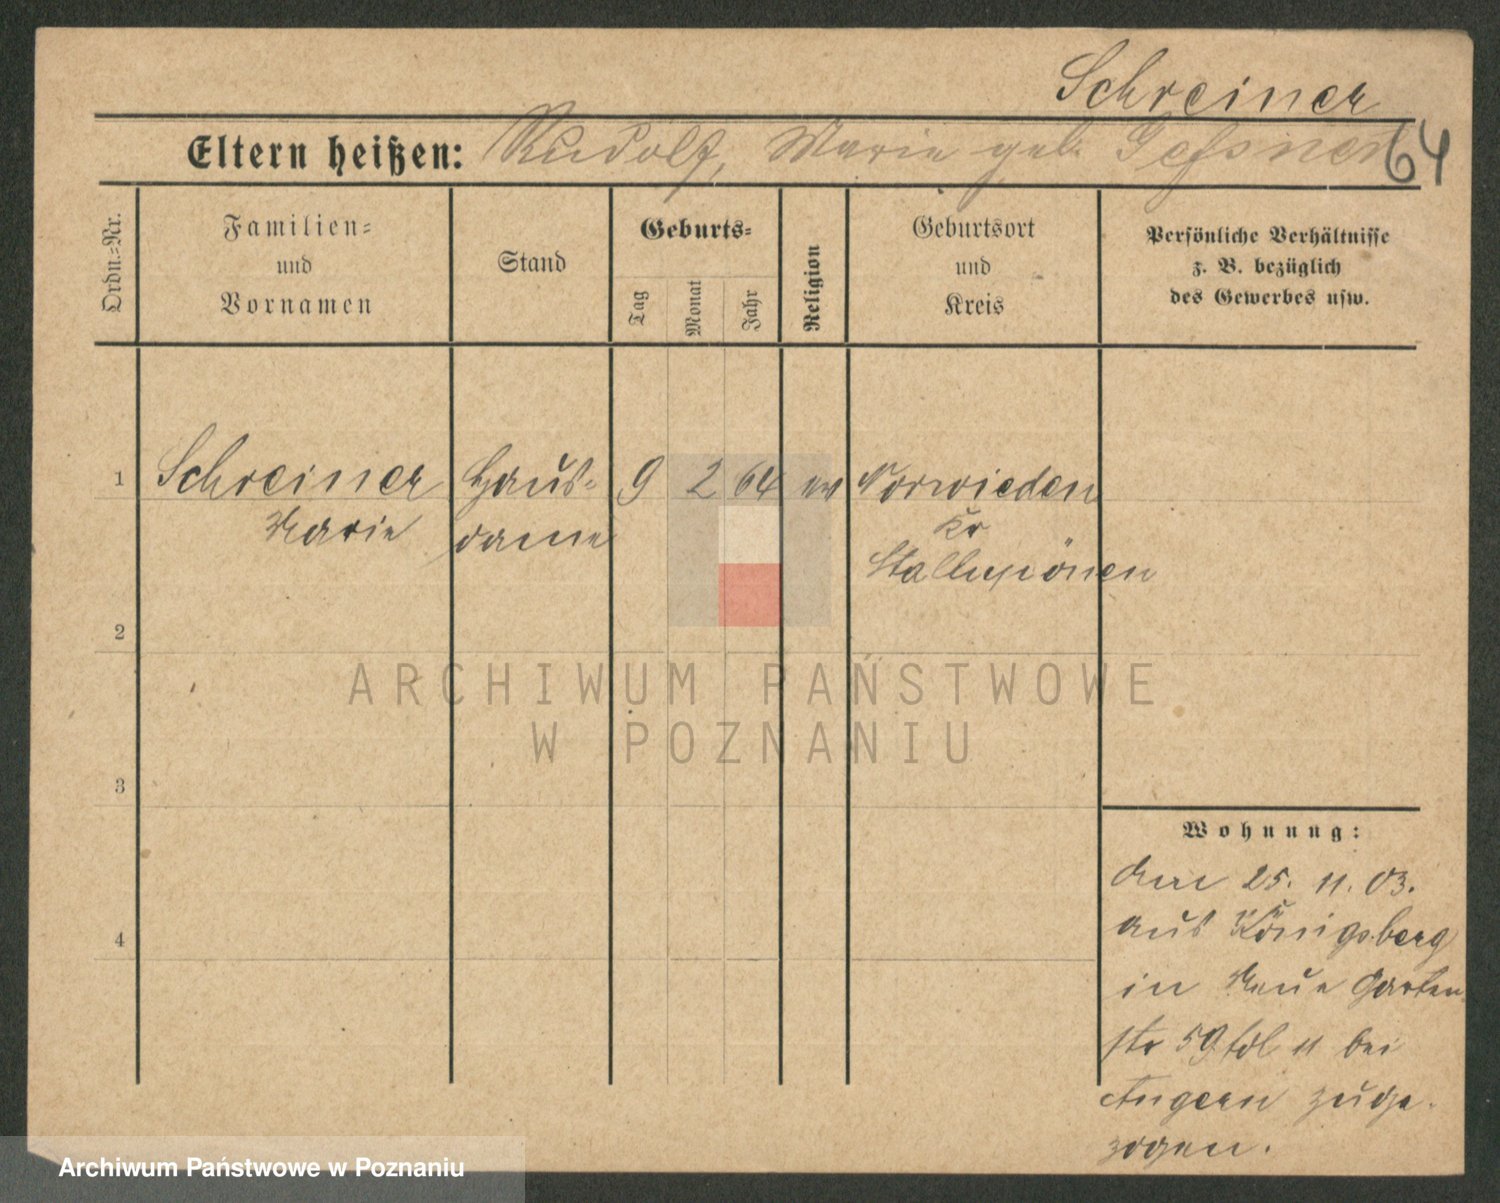 Schreiner
64
Eltern heißen: Rudolf, Marie geb. Gessner
Ordn.=Nr.
Familien=
und
Vornamen
Stand
Geburts=
Tag
Monat
Jahr
Religion
Geburtsort
und
Kreis
Persönliche Verhältnisse
z. B. bezüglich
des Gewerbes usw.
1 Schreiner Haus= 9 2 64 ev Norwieden
Marie dame Kr
Stallupönen
2
3
4
Wohnung:
Den 25. 11. 03.
aus Königsberg
in Neue Garten
str 59 11 bei
Angern zuge-
zogen.
ARCHIWUM PAŃSTWOWE
W POZNANIU
Archiwum Państwowe w Poznaniu